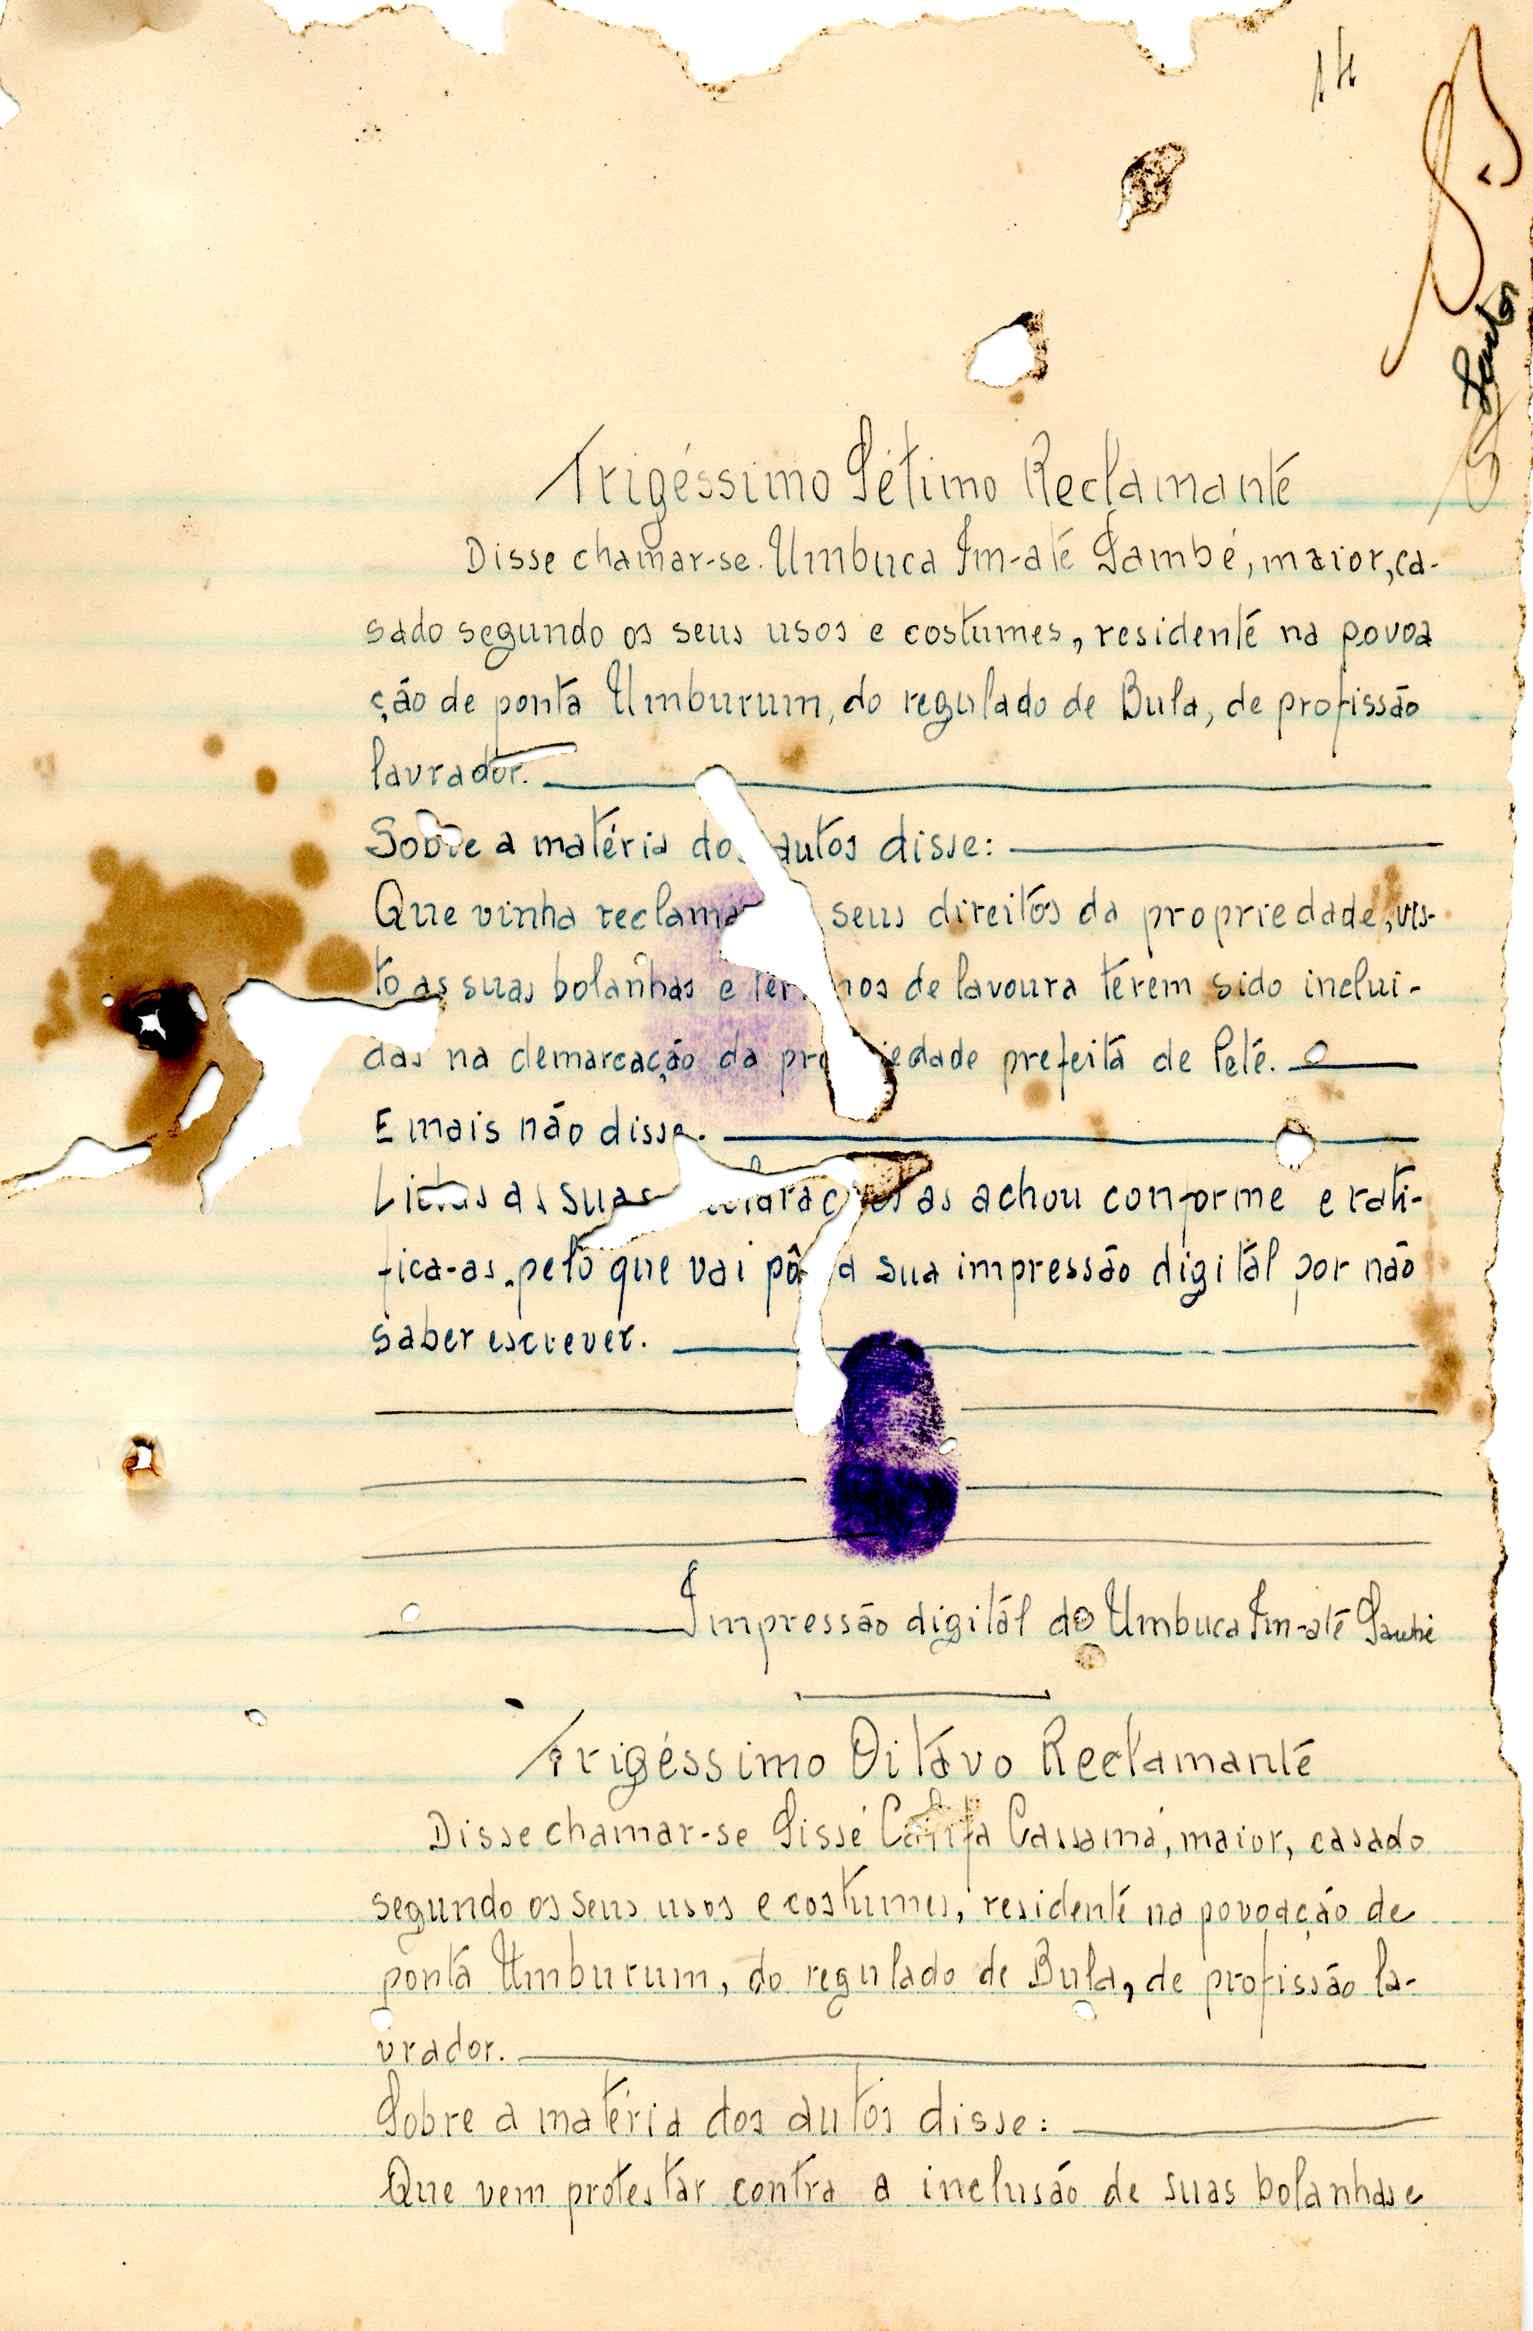 14
Trigéssimo Sétimo Reclamante
Disse chamar-se Umbuca Im-até Sambé, maior, ca-
sado segundo os seus usos e costumes, residente na povoa
ção de ponta Umburum, do regulado de Bula, de profissão
lavrador.
Sobre a matéria dos autos disse:
Que vinha reclamar seus direitos da propriedade, vis-
to as suas bolanhas e terrenos de lavoura terem sido inclui-
das na demarcação da propriedade prefeita de Peté.
E mais não disse.
Lidas as suas declarações as achou conforme e rati-
fica-as, pelo que vai pôr a sua impressão digitál por não
saber escrever.
Impressão digitál do Umbuca Im-até Sambé
Trigéssimo Oitavo Reclamante
Disse chamar-se Sissé Cassamá, maior, casado
segundo os seus usos e costumes, residente na povoação de
ponta Umburum, do regulado de Bula, de profissão la-
vrador.
Sobre a matéria dos autos disse:
Que vem protestar contra a inclusão de suas bolanhas e